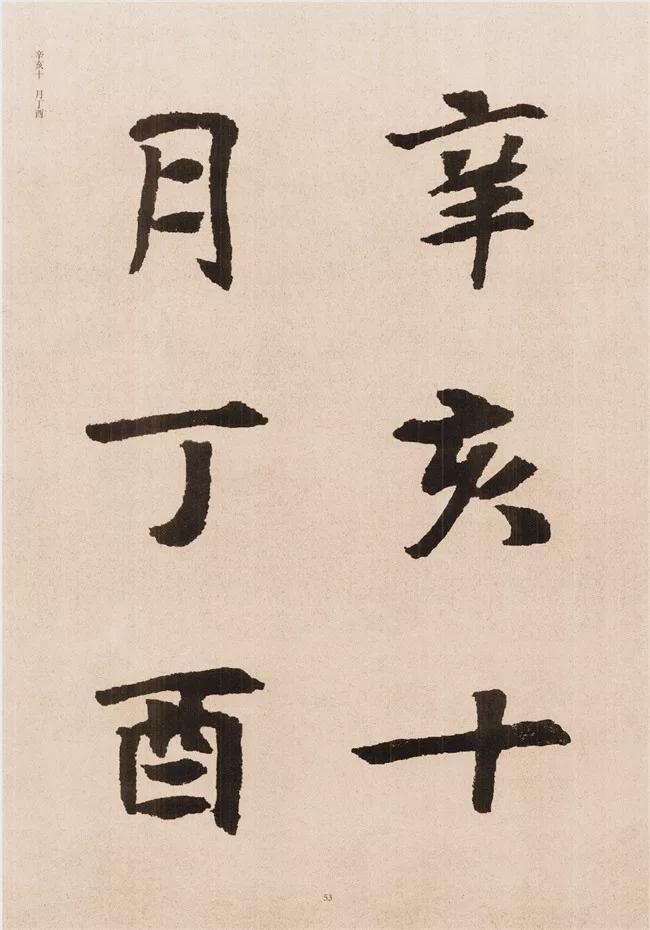 辛亥十
月丁酉
辛亥十 月丁酉
53